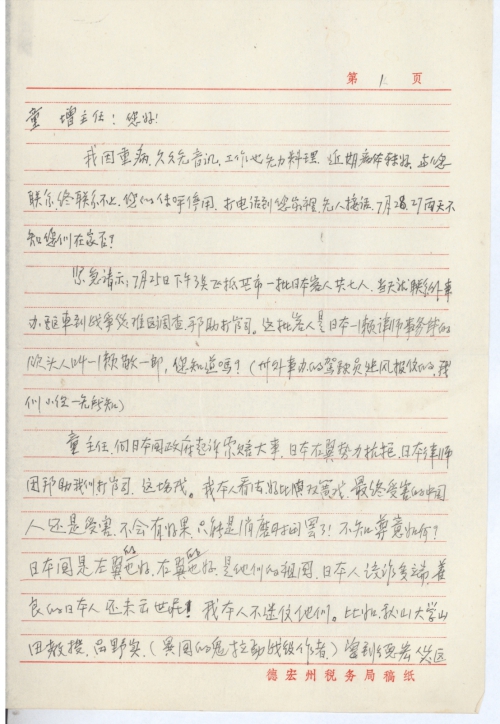 第 1 页
童增主任！您好！
我因重病，久久无音讯，工作也无力料理，近期病体转好，与您
联系，终联系不上，您的传呼停用，打电话到您家裡，无人接话，7月26、27两天不
知您们在家否？
紧急请示：7月25日下午3点飞抵芒市一批日本客人共七人，当天就联系外事
办驱車到战争受难区调查帮助打官司。这批客人是日本一濑律师事务所的
队头人叫一濑敬一郎，您知道吗？（州外事办的驾驶员姓风报信的，我
们小组一无所知）
童主任，向日本国政府起诉索赔大事，日本右翼势力抗拒，日本律师
团帮助我们打官司，这场戏。我本人看去好比演双簧戏，最终受害的中国
人还是受害，不会有好果，只能是消磨时间罢了！不知尊意如何？
日本国是左翼的也好，右翼的也好，是他们的祖国，日本人诡诈多端，善
良的日本人还未去世呢！我本人不迷信他们。比如，秋山大学山
田教授、品野实，（異国的鬼拉勐战役作者）曾到德宏灾区
德宏州税务局稿纸